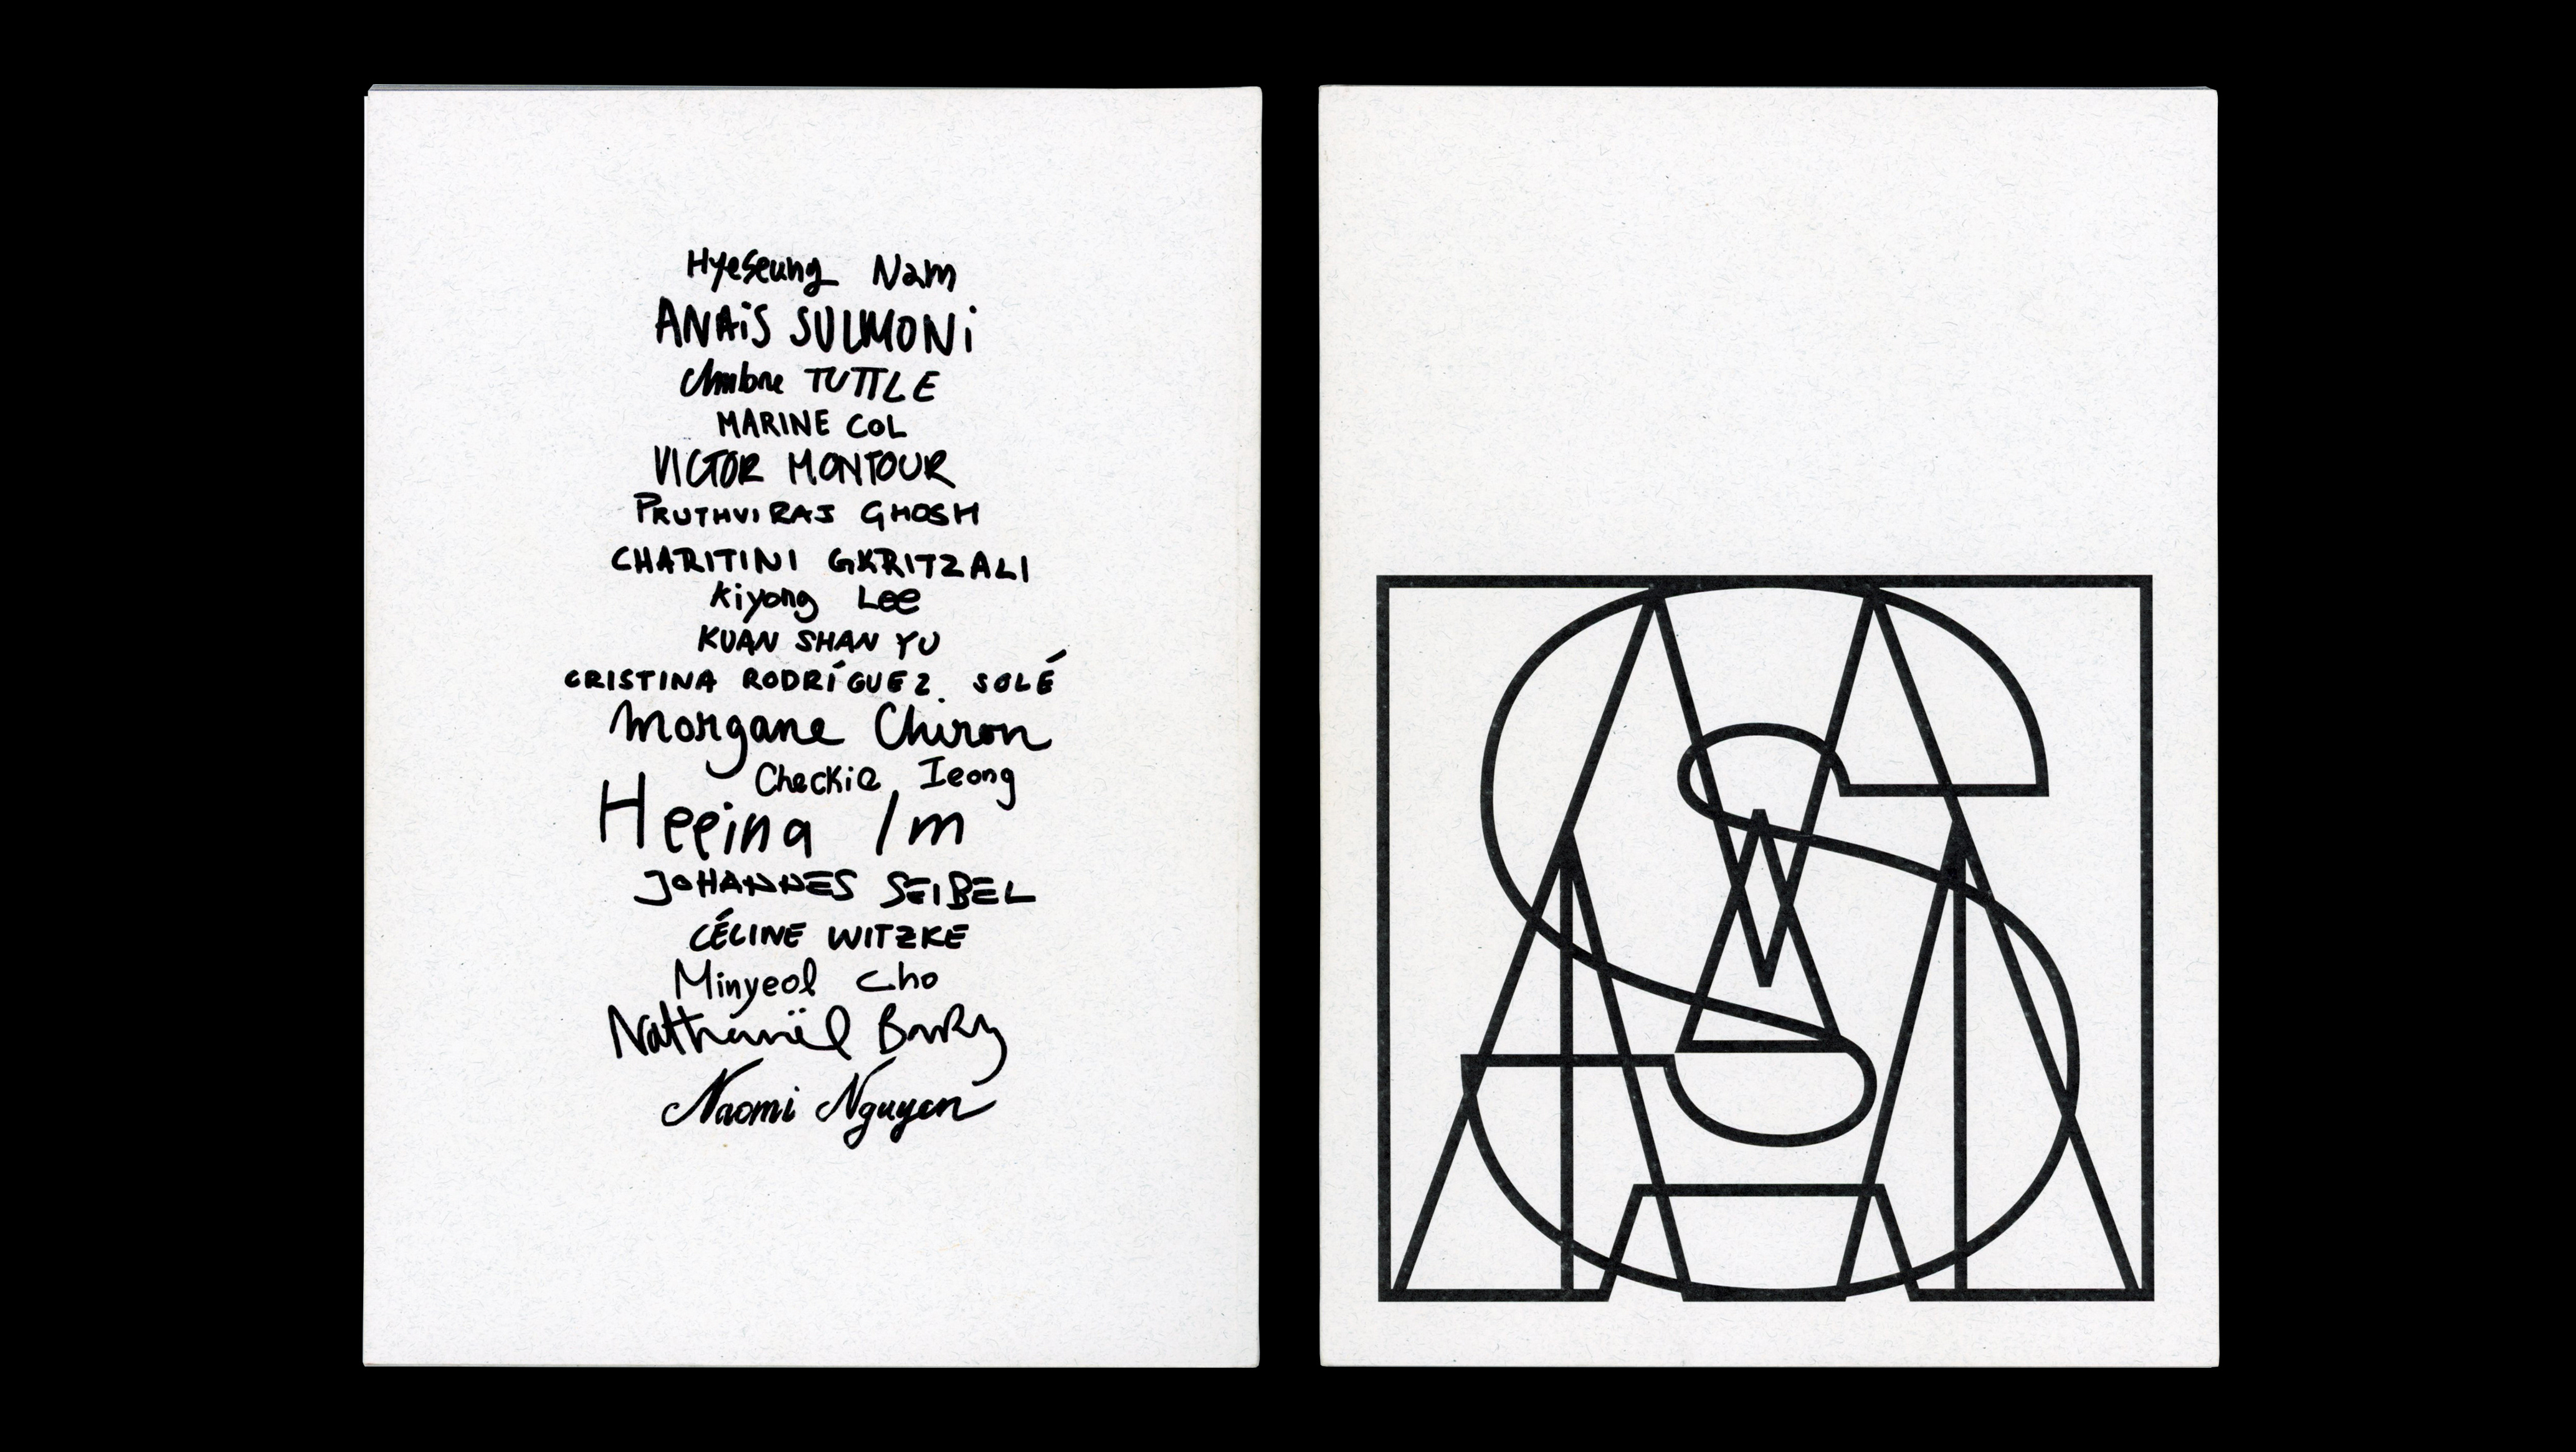 Hyeseung Nam
ANAiS SULMONi
Ambre TUTTLE
MARINE COL
VICTOR MONTOUR
PRUTHVIRAJ GHOSH
CHARITINI GKRITZALI
Kiyong Lee
KUAN SHAN YU
CRISTINA RODRÍGUEZ SOLÉ
Morgane Chiron
Checkie Ieong
Heejna Im
JOHANNES SEIBEL
CÉLINE WITZKE
Minyeol Cho
Nathanaël
Naomi Nguyen